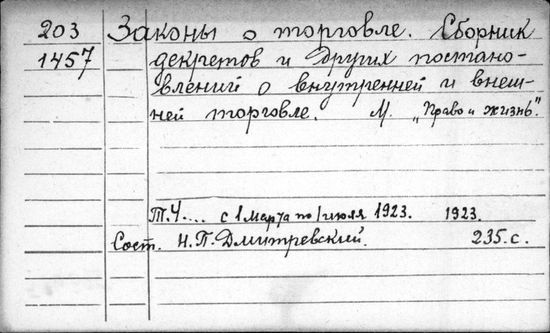 203 Законы о торговле. Сборник
1457 декретов и других постано-
влений о внутренней и внеш-
ней торговле. М. „Право и жизнь".
Т.Ч.... с 1 марта по 1 июля 1923. 1923.
Сост. Н.П. Дмитревский. 235.с.